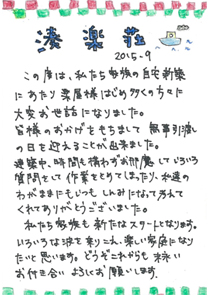 湊楽荘
2015.9
この度は、私たち家族の自宅新築
にあたり棟屋様はじめ多くの方々に
大変お世話になりました。
皆様のおかげをもちまして 無事引渡し
の日を迎えることが出来ました。
建築中、時間も構わずお邪魔していろいろ
質問をして作業をとめてしまったり、私達の
わがままにもいつもしんみになって考えて
くれてありがとうございました。
私たち家族も新たなスタートとなります。
いろいろな波を乗りこえ、楽しい家庭になり
たいと思います。どうぞこれからも末永い
お付き合い よろしくお願いします。